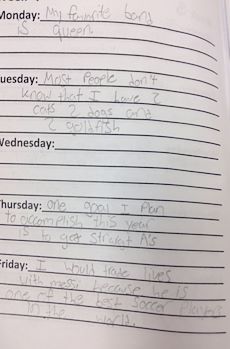 Monday: My favorite band
is queen
uesday: Most People don't
know that I have 2
cats 2 dogs and
2 goldfish
Wednesday:
Thursday: one goal I Plan
to accomplish this year
is to get straight A's
Friday: I would trade lives
with messi because he is
one of the best soccer Players
in the world.